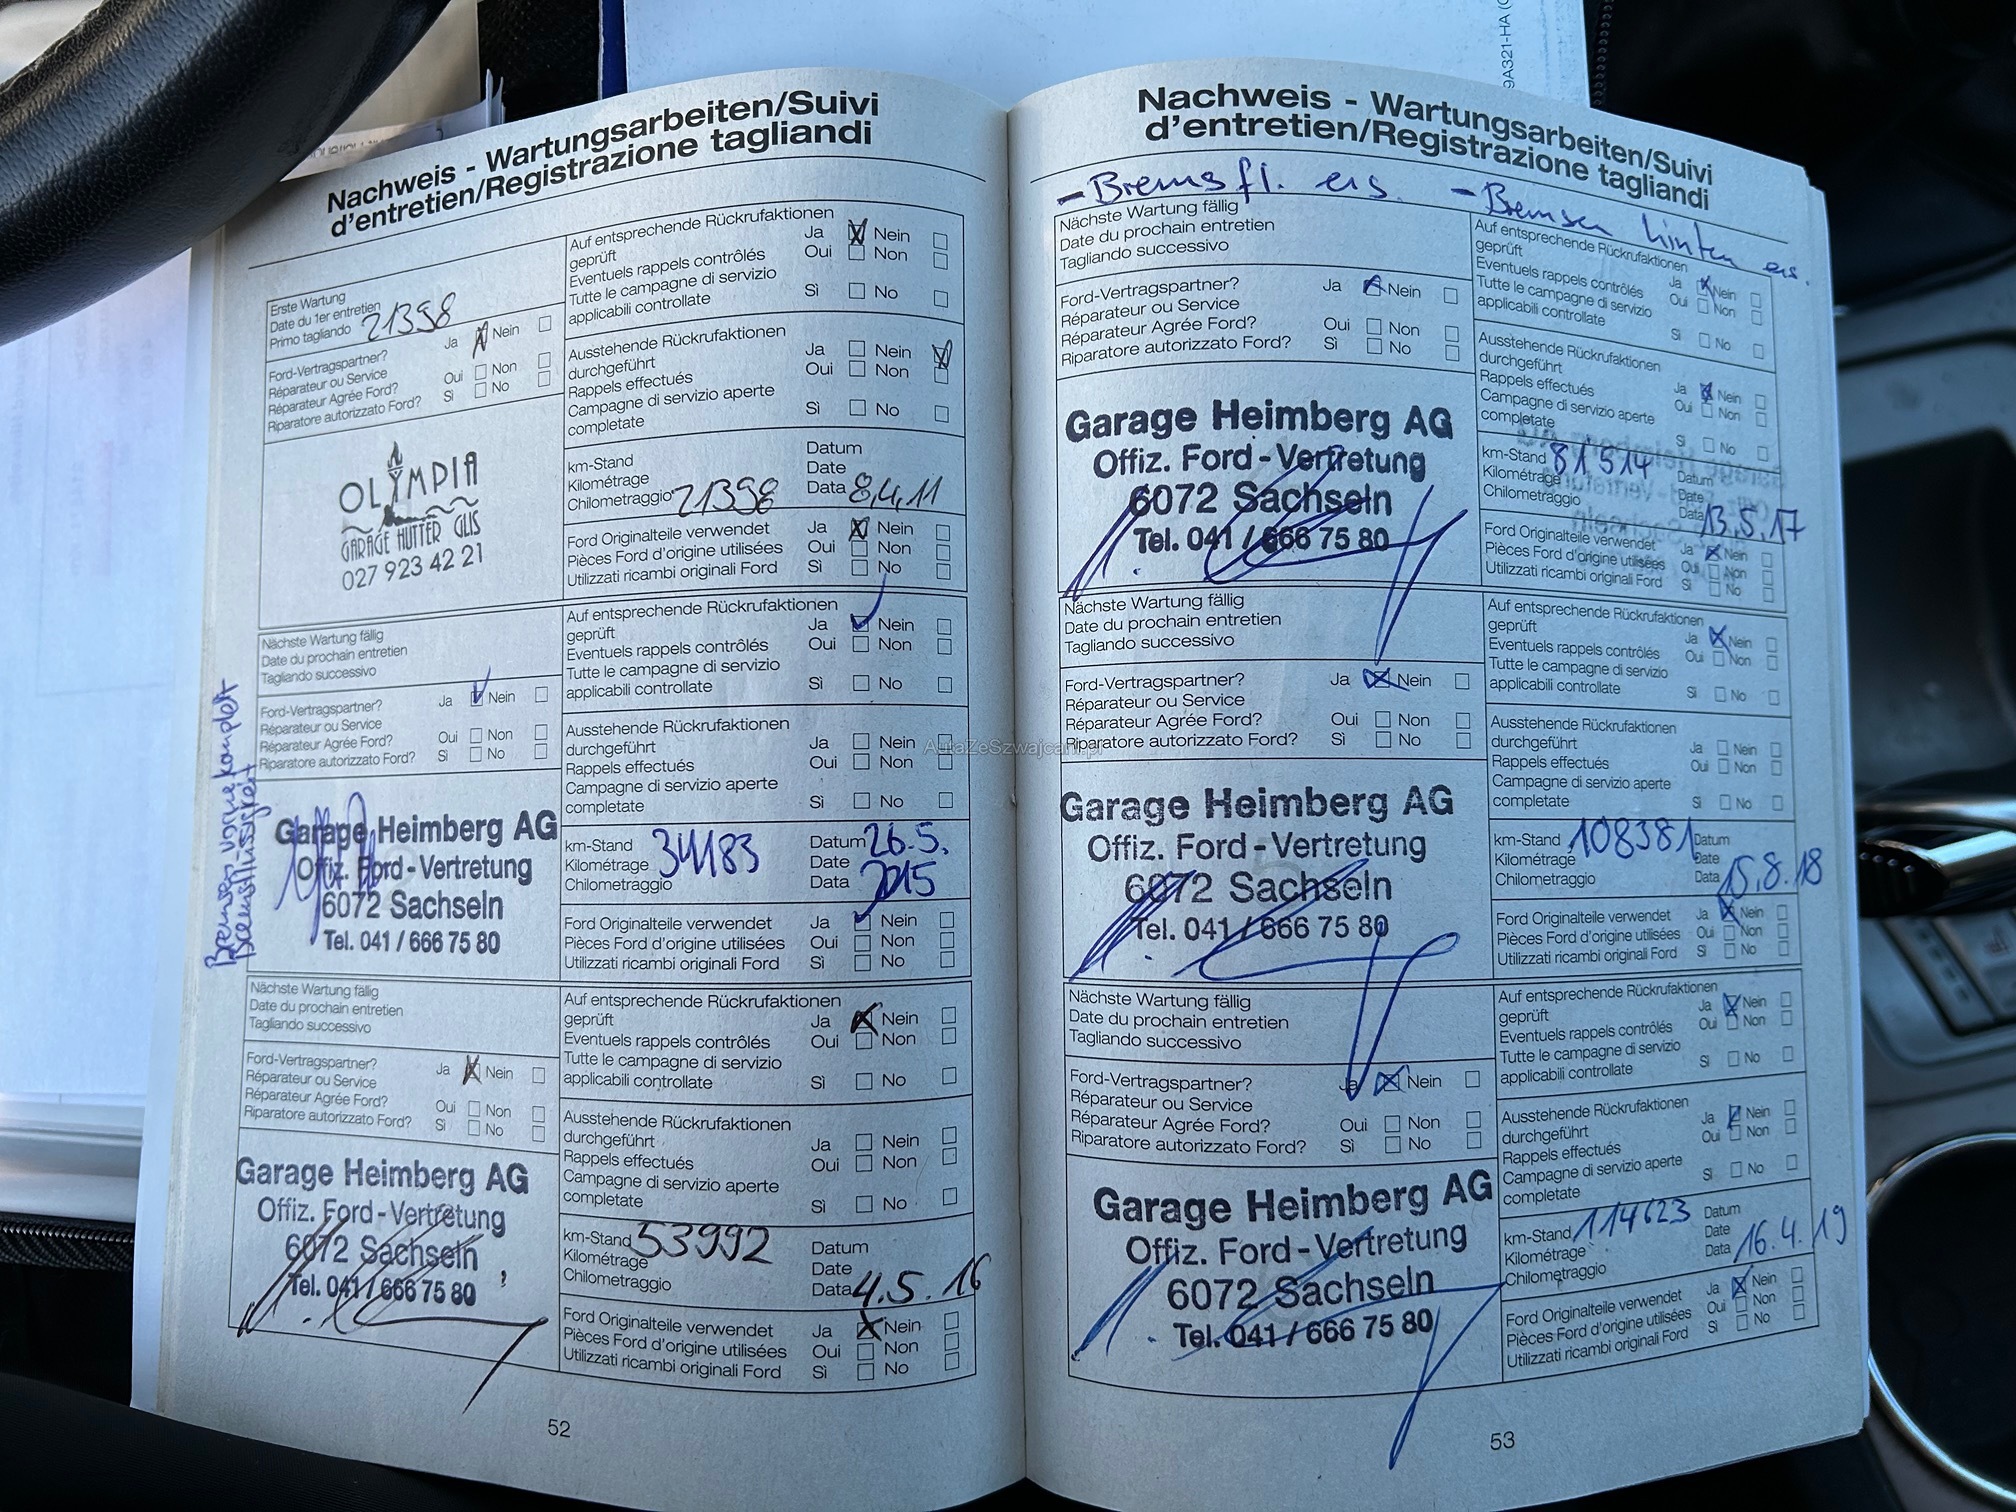 9A321-HA
Nachweis - Wartungsarbeiten/Suivi
d'entretien/Registrazione tagliandi
Erste Wartung
Date du 1er entretien
Primo tagliando 21398
Ford-Vertragspartner?
Réparateur ou Service
Réparateur Agrée Ford?
Riparatore autorizzato Ford?
Ja Nein
Oui Non
Sì No
OLYMPIA
GARAGE HUTTER GLIS
027 923 42 21
Auf entsprechende Rückrufaktionen
geprüft
Eventuels rappels contrôlés
Tutte le campagne di servizio
applicabili controllate
Ja Nein
Oui Non
Sì No
Ausstehende Rückrufaktionen
durchgeführt
Rappels effectués
Campagne di servizio aperte
completate
Ja Nein
Oui Non
Sì No
km-Stand
Kilométrage
Chilometraggio 21398
Datum
Date
Data 8.4.11
Ford Originalteile verwendet Ja Nein
Pièces Ford d'origine utilisées Oui Non
Utilizzati ricambi originali Ford Sì No
Nächste Wartung fällig
Date du prochain entretien
Tagliando successivo
Ford-Vertragspartner?
Réparateur ou Service
Réparateur Agrée Ford?
Riparatore autorizzato Ford?
Ja Nein
Oui Non
Sì No
Bremsen vorne komplett
Bremsflüssigkeit
Garage Heimberg AG
Offiz. Ford - Vertretung
6072 Sachseln
Tel. 041 / 666 75 80
Auf entsprechende Rückrufaktionen
geprüft
Eventuels rappels contrôlés
Tutte le campagne di servizio
applicabili controllate
Ja Nein
Oui Non
Sì No
Ausstehende Rückrufaktionen
durchgeführt
Rappels effectués
Campagne di servizio aperte
completate
Ja Nein
Oui Non
Sì No
km-Stand 34183
Kilométrage
Chilometraggio
Datum 26.5.
Date 2015
Data
Ford Originalteile verwendet Ja Nein
Pièces Ford d'origine utilisées Oui Non
Utilizzati ricambi originali Ford Sì No
Nächste Wartung fällig
Date du prochain entretien
Tagliando successivo
Ford-Vertragspartner?
Réparateur ou Service
Réparateur Agrée Ford?
Riparatore autorizzato Ford?
Ja Nein
Oui Non
Sì No
Garage Heimberg AG
Offiz. Ford - Vertretung
6072 Sachseln
Tel. 041 / 666 75 80
Auf entsprechende Rückrufaktionen
geprüft
Eventuels rappels contrôlés
Tutte le campagne di servizio
applicabili controllate
Ja Nein
Oui Non
Sì No
Ausstehende Rückrufaktionen
durchgeführt
Rappels effectués
Campagne di servizio aperte
completate
Ja Nein
Oui Non
Sì No
km-Stand 53992
Kilométrage
Chilometraggio
Datum
Date
Data 4.5.16
Ford Originalteile verwendet Ja Nein
Pièces Ford d'origine utilisées Oui Non
Utilizzati ricambi originali Ford Sì No
52
Nachweis - Wartungsarbeiten/Suivi
d'entretien/Registrazione tagliandi
- Bremsfl. ers. - Bremsen hinten ers.
Nächste Wartung fällig
Date du prochain entretien
Tagliando successivo
Ford-Vertragspartner?
Réparateur ou Service
Réparateur Agrée Ford?
Riparatore autorizzato Ford?
Ja Nein
Oui Non
Sì No
Garage Heimberg AG
Offiz. Ford - Vertretung
6072 Sachseln
Tel. 041 / 666 75 80
Auf entsprechende Rückrufaktionen
geprüft
Eventuels rappels contrôlés
Tutte le campagne di servizio
applicabili controllate
Ja Nein
Oui Non
Sì No
Ausstehende Rückrufaktionen
durchgeführt
Rappels effectués
Campagne di servizio aperte
completate
Ja Nein
Oui Non
Sì No
km-Stand 81514
Kilométrage
Chilometraggio
Datum
Date
Data 13.5.17
Ford Originalteile verwendet Ja Nein
Pièces Ford d'origine utilisées Oui Non
Utilizzati ricambi originali Ford Sì No
Nächste Wartung fällig
Date du prochain entretien
Tagliando successivo
Ford-Vertragspartner?
Réparateur ou Service
Réparateur Agrée Ford?
Riparatore autorizzato Ford?
Ja Nein
Oui Non
Sì No
AutaZeSzwajcarii.pl
Garage Heimberg AG
Offiz. Ford - Vertretung
6072 Sachseln
Tel. 041 / 666 75 80
Auf entsprechende Rückrufaktionen
geprüft
Eventuels rappels contrôlés
Tutte le campagne di servizio
applicabili controllate
Ja Nein
Oui Non
Sì No
Ausstehende Rückrufaktionen
durchgeführt
Rappels effectués
Campagne di servizio aperte
completate
Ja Nein
Oui Non
Sì No
km-Stand 108381
Kilométrage
Chilometraggio
Datum
Date
Data 15.8.18
Ford Originalteile verwendet Ja Nein
Pièces Ford d'origine utilisées Oui Non
Utilizzati ricambi originali Ford Sì No
Nächste Wartung fällig
Date du prochain entretien
Tagliando successivo
Ford-Vertragspartner?
Réparateur ou Service
Réparateur Agrée Ford?
Riparatore autorizzato Ford?
Ja Nein
Oui Non
Sì No
Garage Heimberg AG
Offiz. Ford - Vertretung
6072 Sachseln
Tel. 041 / 666 75 80
Auf entsprechende Rückrufaktionen
geprüft
Eventuels rappels contrôlés
Tutte le campagne di servizio
applicabili controllate
Ja Nein
Oui Non
Sì No
Ausstehende Rückrufaktionen
durchgeführt
Rappels effectués
Campagne di servizio aperte
completate
Ja Nein
Oui Non
Sì No
km-Stand 114623
Kilométrage
Chilometraggio
Datum
Date
Data 16.4.19
Ford Originalteile verwendet Ja Nein
Pièces Ford d'origine utilisées Oui Non
Utilizzati ricambi originali Ford Sì No
53